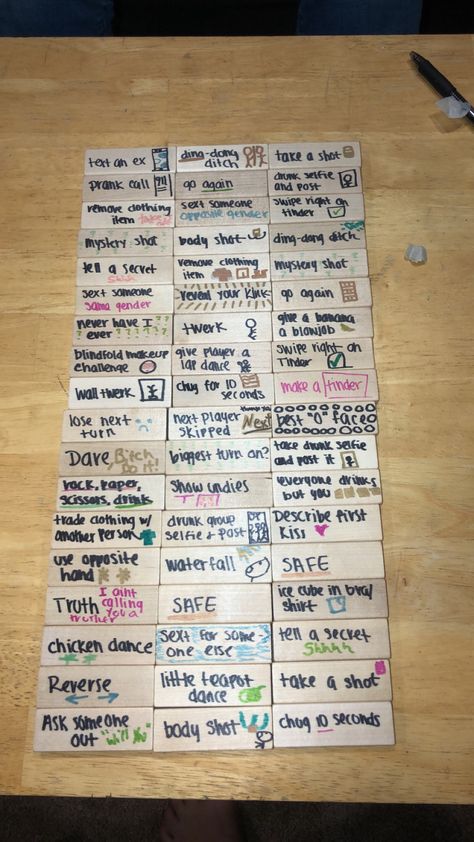 text an ex
ding-dong
ditch
take a shot
prank call 911
go again
drunk selfie
and post
remove clothing
item take it off
sext someone
opposite gender
swipe right on
tinder
mystery shot
body shot
ding-dong ditch
tell a secret
Shhh
remove clothing
item
mystery shot
sext someone
same gender
reveal your kink
go again
never have I
ever
twerk
give a banana
a blowjob
blindfold makeup
challenge
give player a
lap dance
swipe right on
Tinder
wall twerk
chug for 10
seconds
make a tinder
lose next
turn
next player
skipped
thank you
Next
best "O" face
Dare Bitch
Do it!
biggest turn on?
take drunk selfie
and post it
rock, paper,
scissors, drink
show undies
everyone drinks
but you
trade clothing w/
another person
drunk group
selfie & post
Describe first
kiss
use opposite
hand
waterfall
SAFE
Truth I aint
calling
you a
truther
SAFE
ice cube in bra/
shirt
chicken dance
Sext for some-
one else
tell a secret
Shhhh
Reverse
little teapot
dance
take a shot
Ask someone
out "will you"
body shot
chug 10 seconds